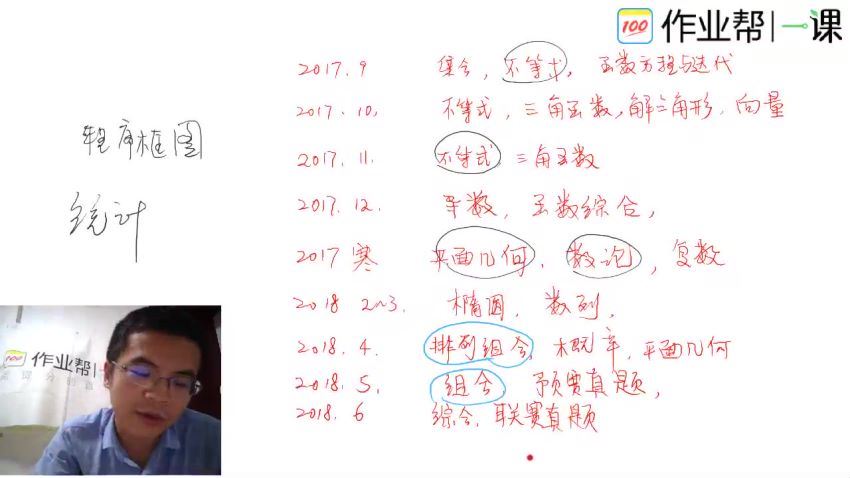 100 作业帮一课
程序框图
统计
2017.9 集合, 不等式, 函数方程与迭代
2017.10. 不等式, 三角函数, 解三角形. 向量
2017.11. 不等式, 三角函数
2017.12. 导数, 函数综合,
2017 寒 平面几何, 数论, 复数
2018 2~3. 椭圆, 数列.
2018.4. 排列组合, 概率, 平面几何
2018.5. 组合. 预赛真题,
2018.6 综合. 联赛真题
100 作业帮